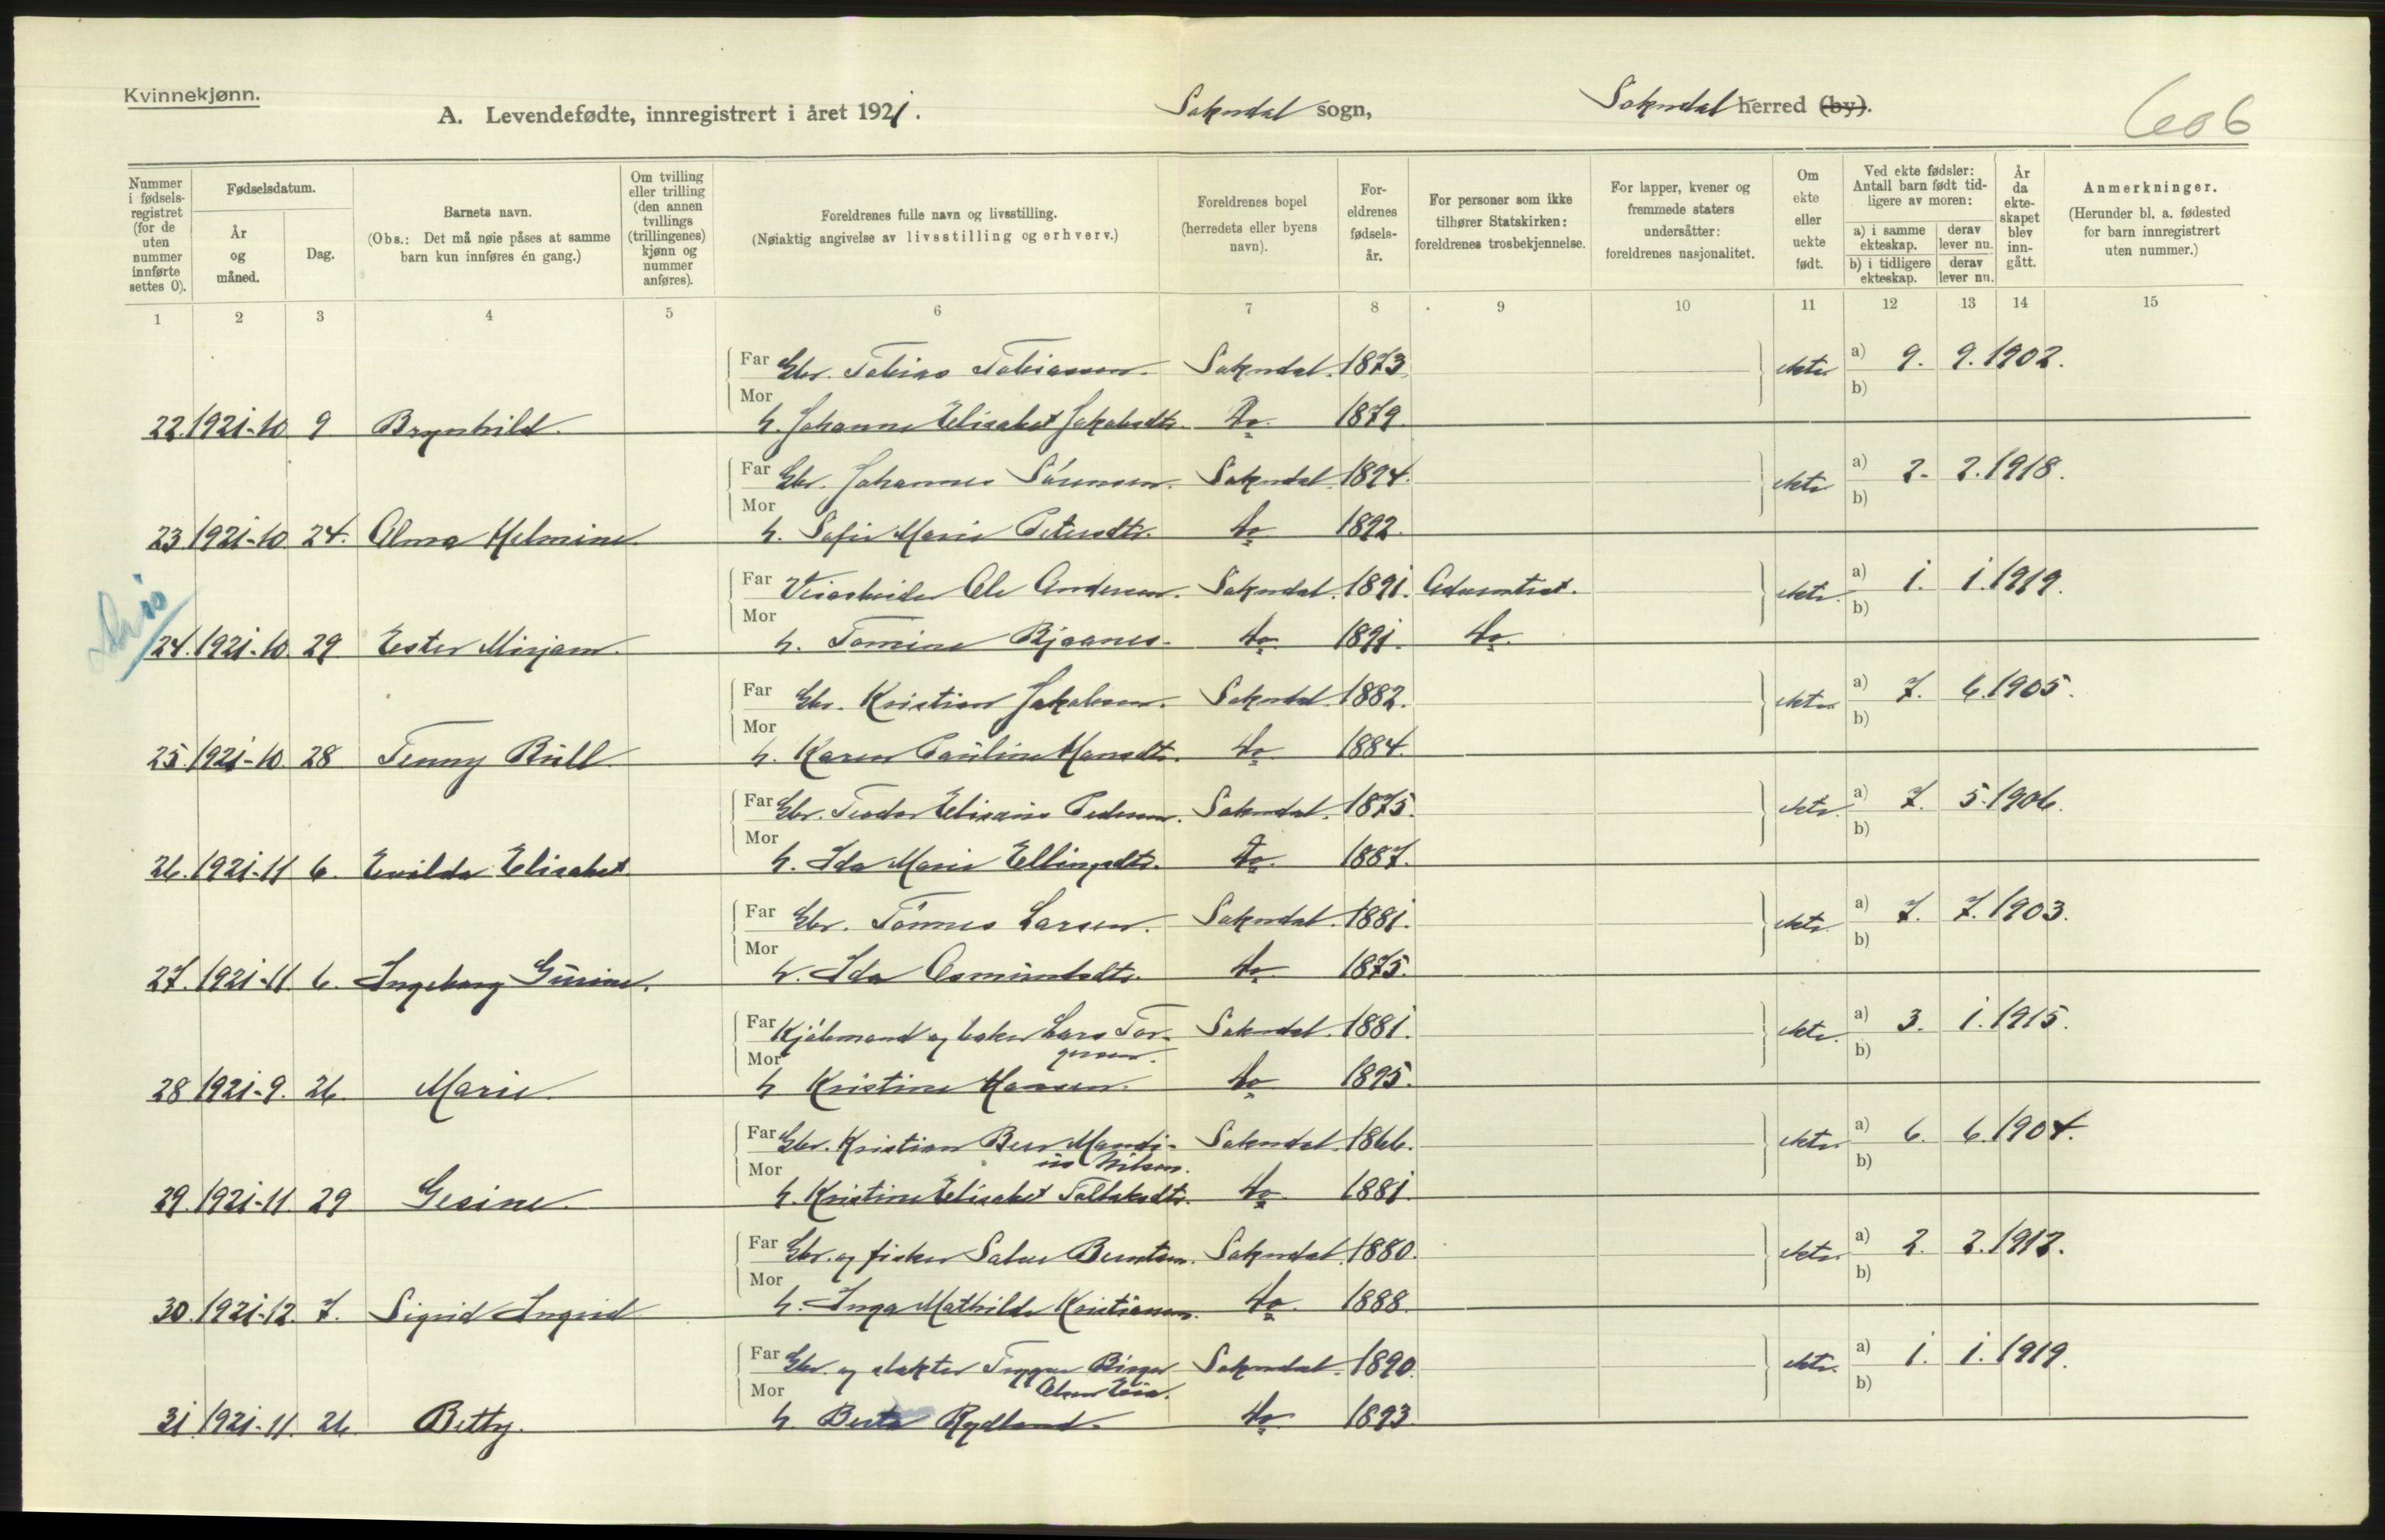 Kvinnekjønn.
A. Levendefødte, innregistrert i året 1921. Sokndal sogn, Sokndal herred (by).
606
Nummer i fødsels-registret (for de uten nummer innførte settes 0).
Fødselsdatum.
År og måned.
Dag.
Barnets navn.
(Obs.: Det må nøie påses at samme barn kun innføres én gang.)
Om tvilling eller trilling (den annen tvillings (trillingenes) kjønn og nummer anføres).
Foreldrenes fulle navn og livsstilling.
(Nøiaktig angivelse av livsstilling og erhverv.)
Foreldrenes bopel (herredets eller byens navn).
For-eldrenes fødsels-år.
For personer som ikke tilhører Statskirken: foreldrenes trosbekjennelse.
For lapper, kvener og fremmede staters undersåtter: foreldrenes nasjonalitet.
Om ekte eller uekte født.
Ved ekte fødsler: Antall barn født tid-ligere av moren:
a) i samme ekteskap.
derav lever nu.
b) i tidligere ekteskap.
derav lever nu.
År da ekte-skapet blev inn-gått.
Anmerkninger.
(Herunder bl. a. fødested for barn innregistrert uten nummer.)
1 2 3 4 5 6 7 8 9 10 11 12 13 14 15
Far Gbr. Tobias Tobiassen. Sokndal. 1873 ekte a) 9. 9. 1902.
Mor b)
22. 1921-10 9 Brynhild. h. Johanne Elisabet Jakobsdtr. do. 1879.
Far Gbr. Johannes Sörensen. Sokndal. 1894. ekte a) 2. 2. 1918.
Mor b)
23 1921-10. 24. Alma Helmine h. Sofie Marie Petersdtr. do 1892.
Far Veiarbeider Ole Andersen. Sokndal. 1891. Adventist. ekte. a) 1. 1. 1919.
Mor b)
24. 1921-10. 29 Ester Mirjam. h. Tomine Bjaanes. do. 1891. do.
Far Gbr. Kristian Jakobsen. Sokndal. 1882. ekte a) 7. 6. 1905.
Mor b)
25. 1921-10. 28 Tenny Bull. h. Karen Pauline Hansdtr. do. 1884.
Far Gbr. Teodor Elisæus Pedersen. Sokndal. 1875. ekte. a) 7. 5. 1906.
Mor b)
26. 1921-11 6. Evilda Elisabet h. Ida Marie Ellingsdtr. do. 1887.
Far Gbr. Tönnes Larsen. Sokndal. 1881. ekte. a) 7. 7. 1903.
Mor b)
27. 1921-11. 6. Ingeborg Gurine. h. Ida Osmundsdtr. do. 1875.
Far Kjöbmand og baker Lars Tor- Sokndal. 1881. ekte. a) 3. 1. 1915.
Mor gersen. b)
28 1921-9. 26. Marie. h. Kristine Hansen. do 1895.
Far Gbr. Kristian Beer Mandi- Sokndal. 1866. ekte a) 6. 6. 1904.
Mor us Nilsen. b)
29. 1921-11. 29 Gesine. h. Kristine Elisabet Tollaksdtr. do. 1881.
Far Gbr. og fisker Salve Berntsen. Sokndal. 1880. ekte. a) 2. 2. 1912.
Mor b)
30. 1921-12. 7. Sigrid Ingrid h. Inga Mathilde Kristiansen. do. 1888.
Far Gbr. og slakter Trygve Birger Sokndal. 1890. ekte. a) 1. 1. 1919.
Mor Olsen Eia. b)
31 1921-11. 26. Betty. h. Berta Rydland. do. 1893.